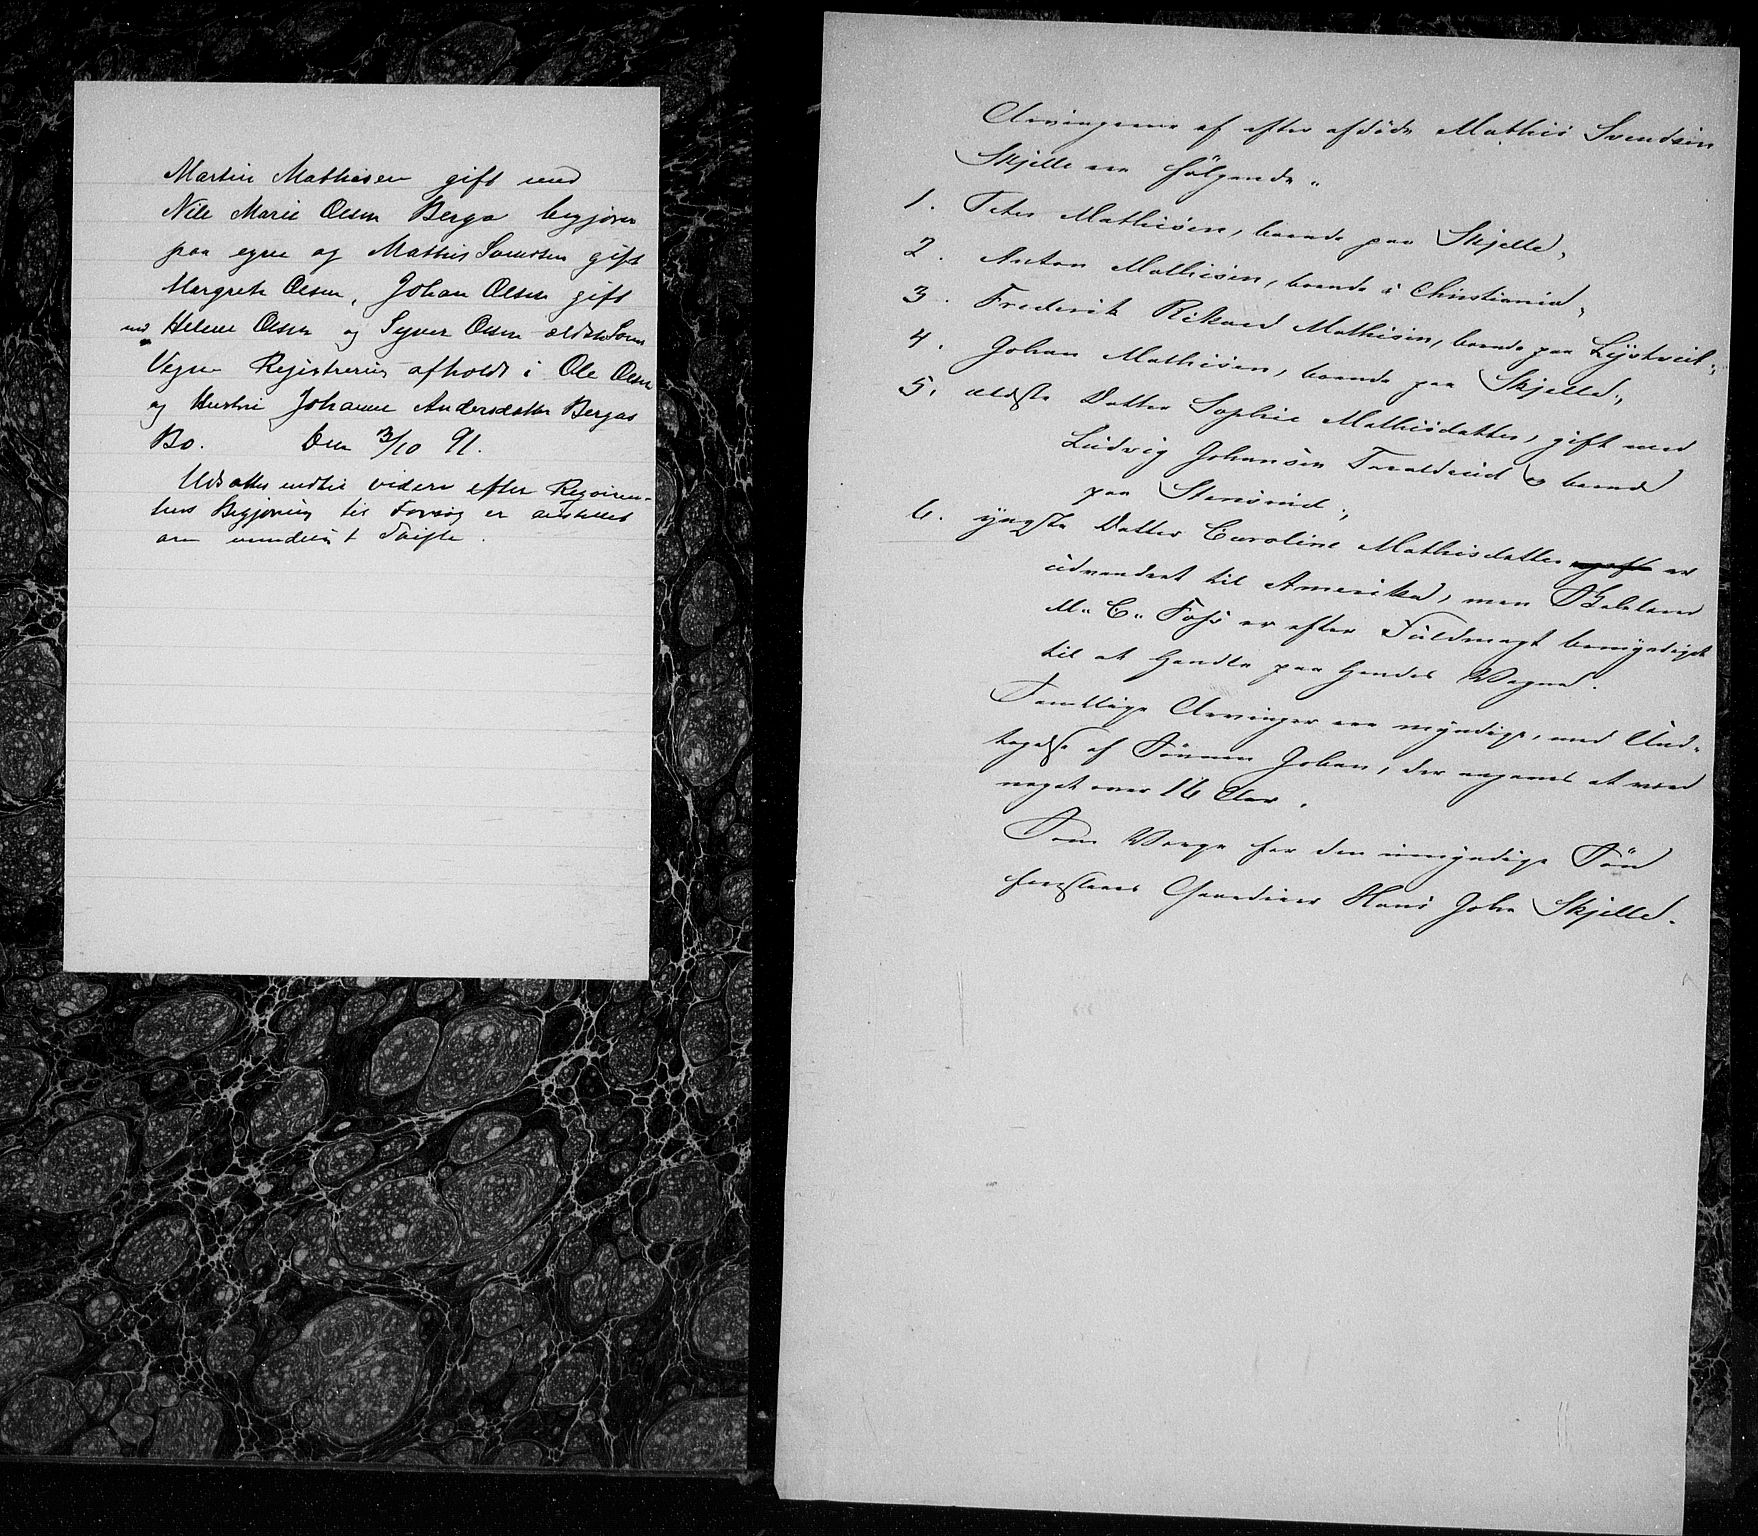 Martin Mathisen gift med
Nile Marie Olsen Berga begjærer
paa egne og Mathis Svendsen gift
Margrete Olsen, Johan Olsen gift
med Helene Olsen og Syver Olsen ældste Søns
Vegne Registrering afholdt i Ole Olsen
og Hustru Johanne Andersdatter Bergas
Bo. Den 3/10 91.
Udsattes indtil videre efter Reqviren-
tens Begjæring til Forsøg er anstillet
om mindeligt Skifte.
Arvingerne af efter afdøde Mathis Svendsen
Skjelle ere følgende.
1. Peter Mathisen, boende paa Skjelle,
2. Anton Mathisen, boende i Christiania,
3. Frederik Rikard Mathisen, boende paa
4. Johan Mathisen, boende paa Skjelle,
5. ældste Datter Sophie Mathisdatter, gift med
Ludvig Johansen Taraldrud boende
paa Stensrud,
6. yngste Datter Caroline Mathisdatter er
udvandret til Amerika, men
M. C. Foss er efter Fuldmagt bemyndiget
til at handle paa hendes Vegne.
Samtlige Arvinger ere myndige, med Und-
tagelse af Sønnen Johan, der opgives at være
noget over 16 Aar.
Som Verge for den umyndige Søn
foreslaaes Gaardeier Hans John Skjelle.